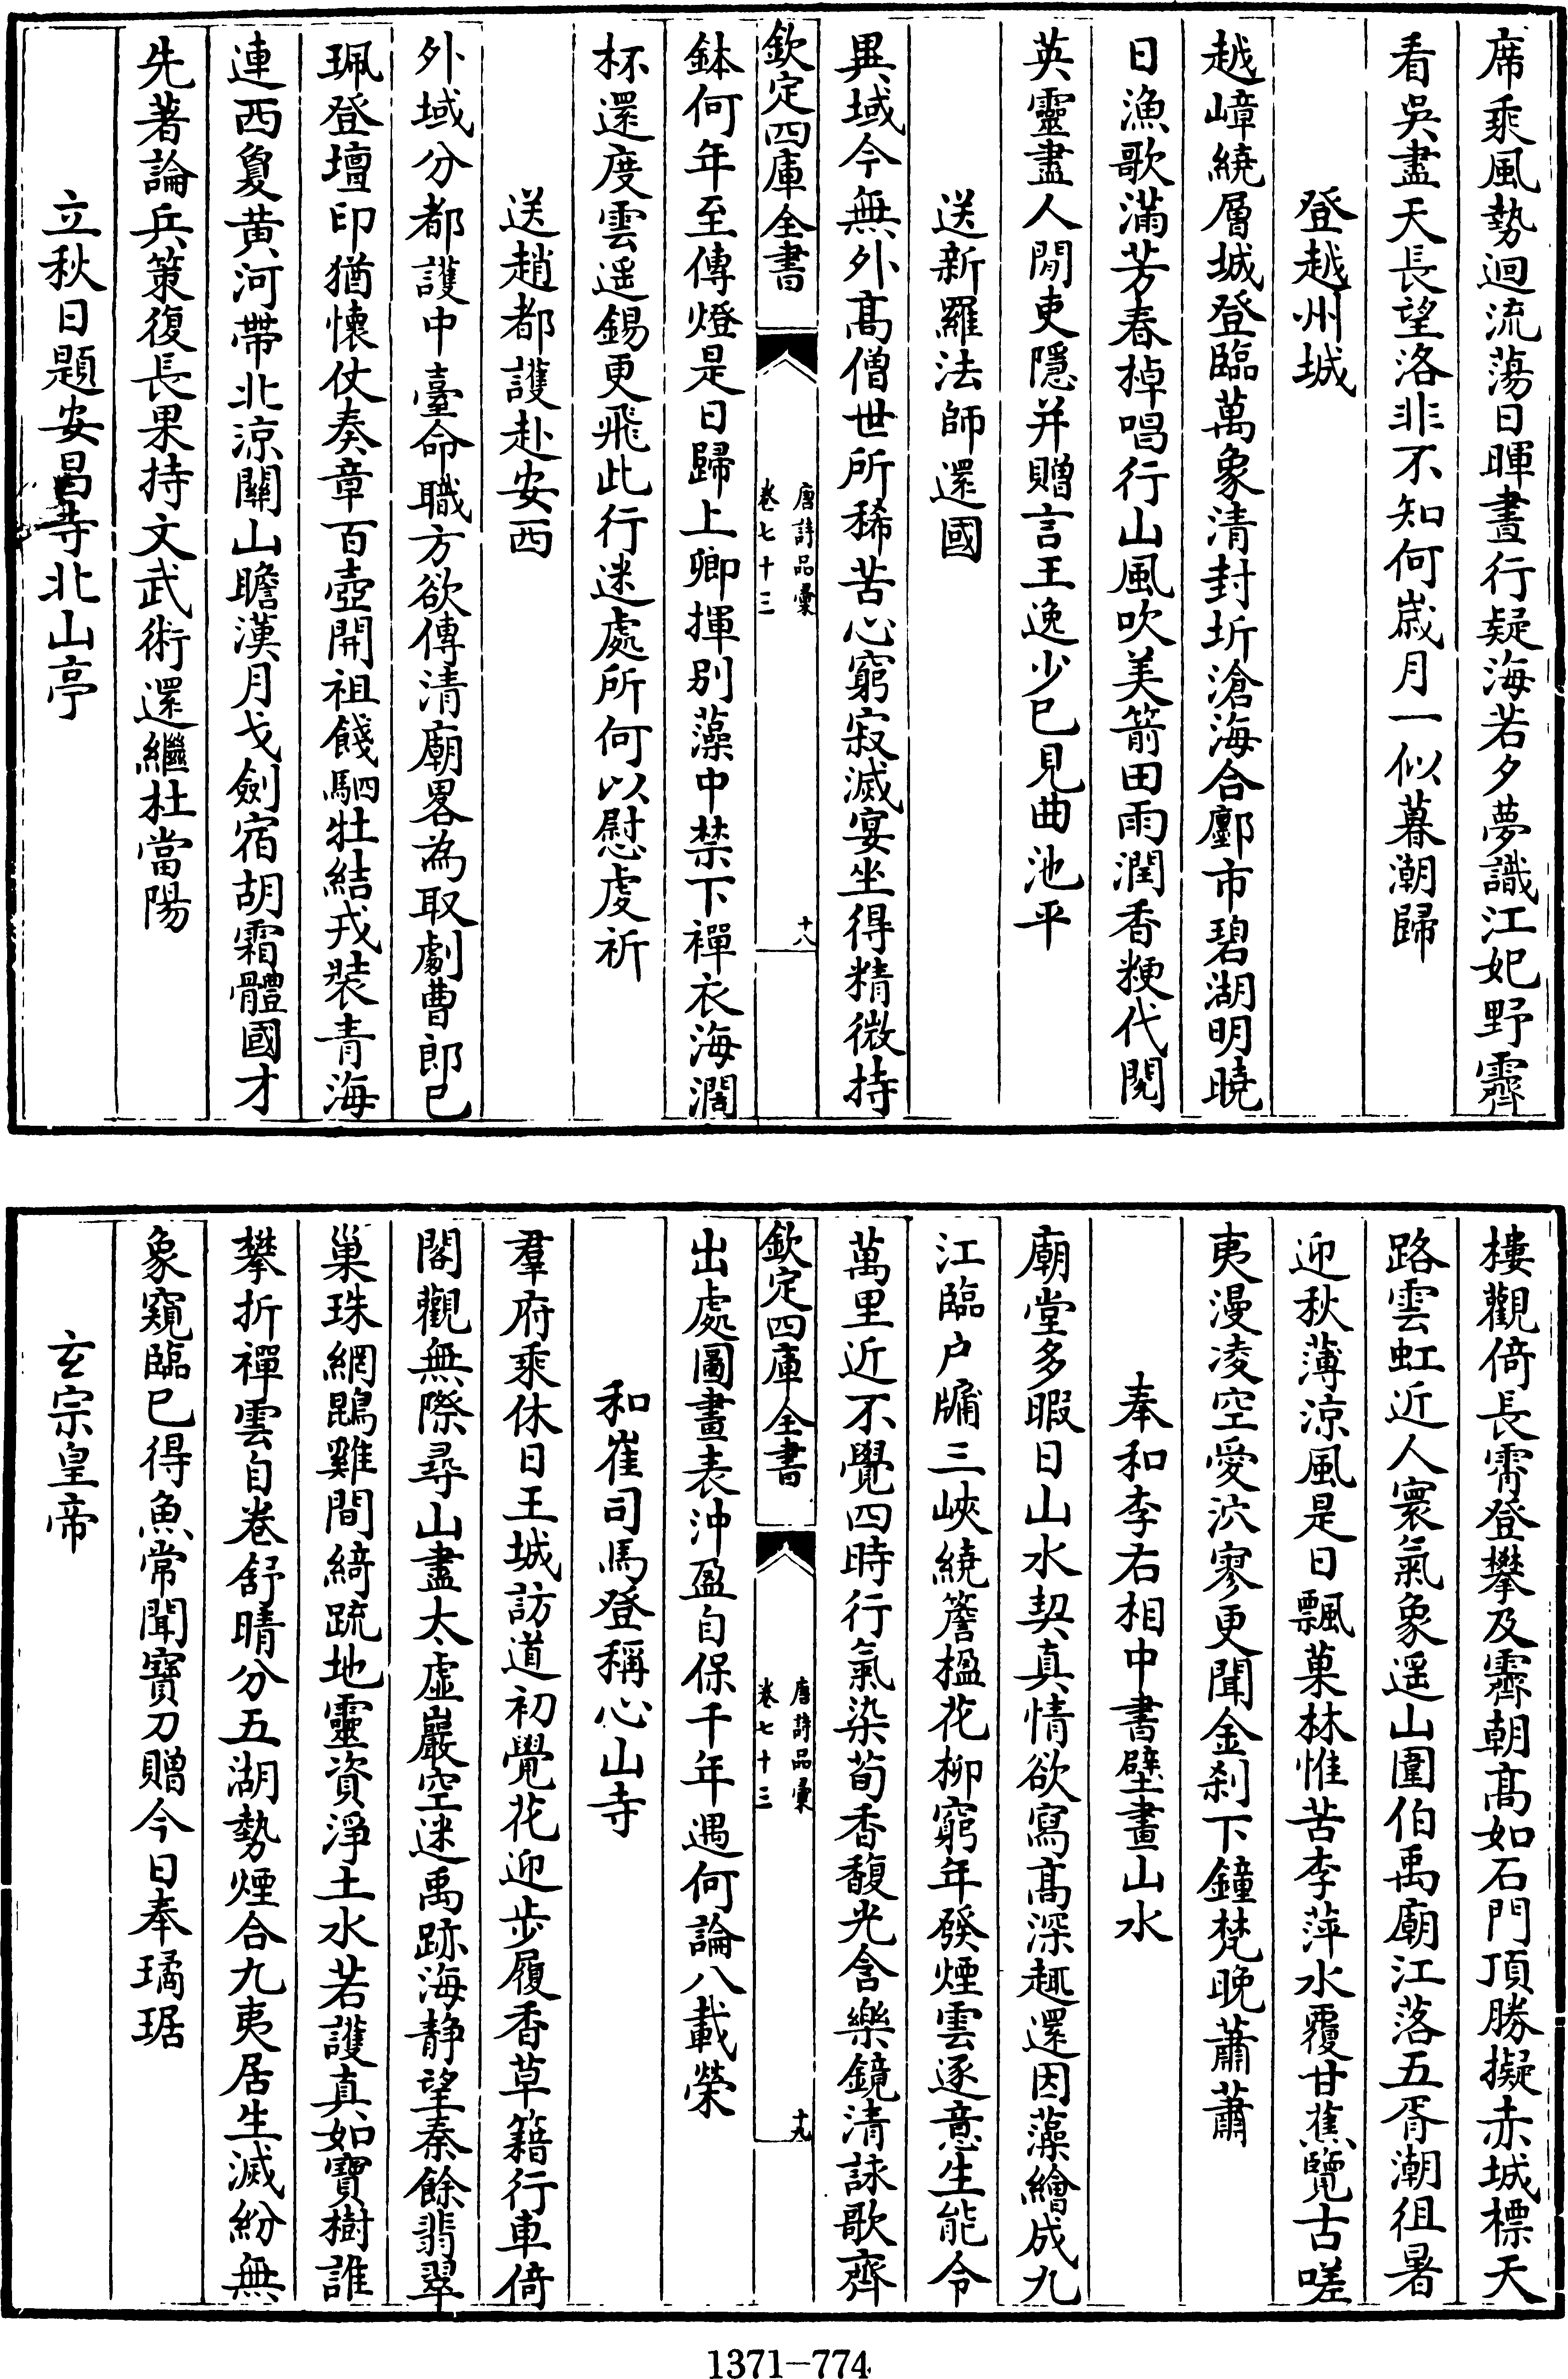 席乘風勢迴流蕩日暉晝行疑海若夕夢識江妃野霽
看吳盡天長望洛非不知何嵗月一似暮潮歸
登越州城
越嶂繞層城登臨萬象清封圻滄海合鄽市碧湖明曉
日漁歌滿芳春棹唱行山風吹美箭田雨潤香粳代閱
英靈盡人閒吏隱并贈言王逸少已見曲池平
送新羅法師還國
異域今無外髙僧世所稀苦心窮寂滅宴坐得精微持
欽定四庫全書
唐詩品彙
卷七十三
十八
鉢何年至傳燈是日歸上卿揮别藻中禁下禪衣海濶
杯還度雲遥錫更飛此行迷處所何以慰虔祈
送趙都護赴安西
外域分都護中臺命職方欲傳清廟畧為取劇曹郎已
珮登壇印猶懷伏奏章百壺開祖餞駟牡結戎裝青海
連西夏黄河帶北涼關山瞻漢月戈劍宿胡霜體國才
先著論兵策復長果持文武術還繼杜當陽
立秋日題安昌寺北山亭
樓觀倚長霄登攀及霽朝髙如石門頂勝擬赤城標天
路雲虹近人寰氣象遥山圍伯禹廟江落五胥潮徂暑
迎秋薄涼風是日飄菓林惟苦李萍水覆甘蕉覽古嗟
夷漫凌空愛泬寥更聞金刹下鐘梵晚蕭蕭
奉和李右相中書壁畫山水
廟堂多暇日山水契真情欲寫髙深趣還因藻繪成九
江臨户牖三峽繞簷楹花柳窮年發煙雲逐意生能令
萬里近不覺四時行氣染荀香馥光含樂鏡清詠歌齊
欽定四庫全書
唐詩品彙
卷七十三
十九
出處圖畫表沖盈自保千年遇何論八載榮
和崔司馬登稱心山寺
羣府乘休日王城訪道初覺花迎步履香草籍行車倚
閣觀無際尋山盡太虚巖空迷禹跡海靜望秦餘翡翠
巢珠網鵾雞間綺疏地靈資淨土水若護真如寶樹誰
攀折禪雲自卷舒晴分五湖勢煙合九夷居生滅紛無
象窺臨已得魚常聞寶刀贈今日奉璚琚
玄宗皇帝
1371-774